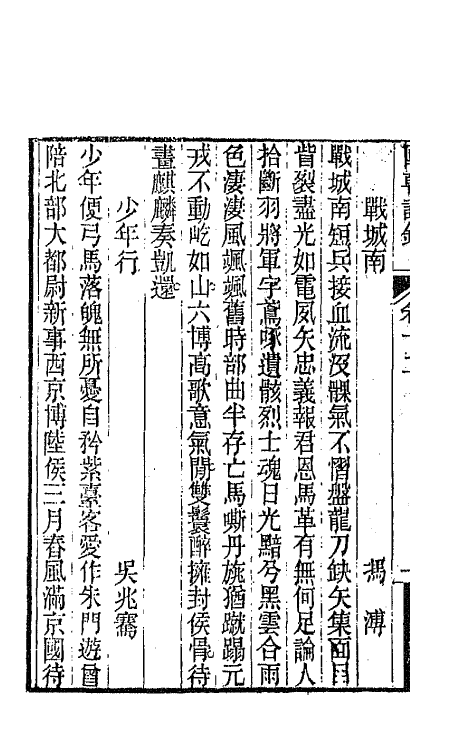 國朝詩鐸 卷十二 一
戰城南 馮溥
戰城南短兵接血流沒髁氣不慴盤龍刀缺矢集面目
眥裂盡光如電夙矢忠義報君恩馬革有無何足論人
拾斷羽將軍字鳶啄遺骸烈士魂日光黯兮黑雲合雨
色淒淒風颯颯舊時部曲半存亡馬嘶丹旐猶蹴蹋元
戎不動屹如山六博高歌意氣閒雙鬟醉擁封侯骨待
畫麒麟奏凱還
少年行 吳兆騫
少年便弓馬落魄無所憂自矜紫橐客愛作朱門遊曾
陪北部大都尉新事西京博陸侯三月春風滿京國待